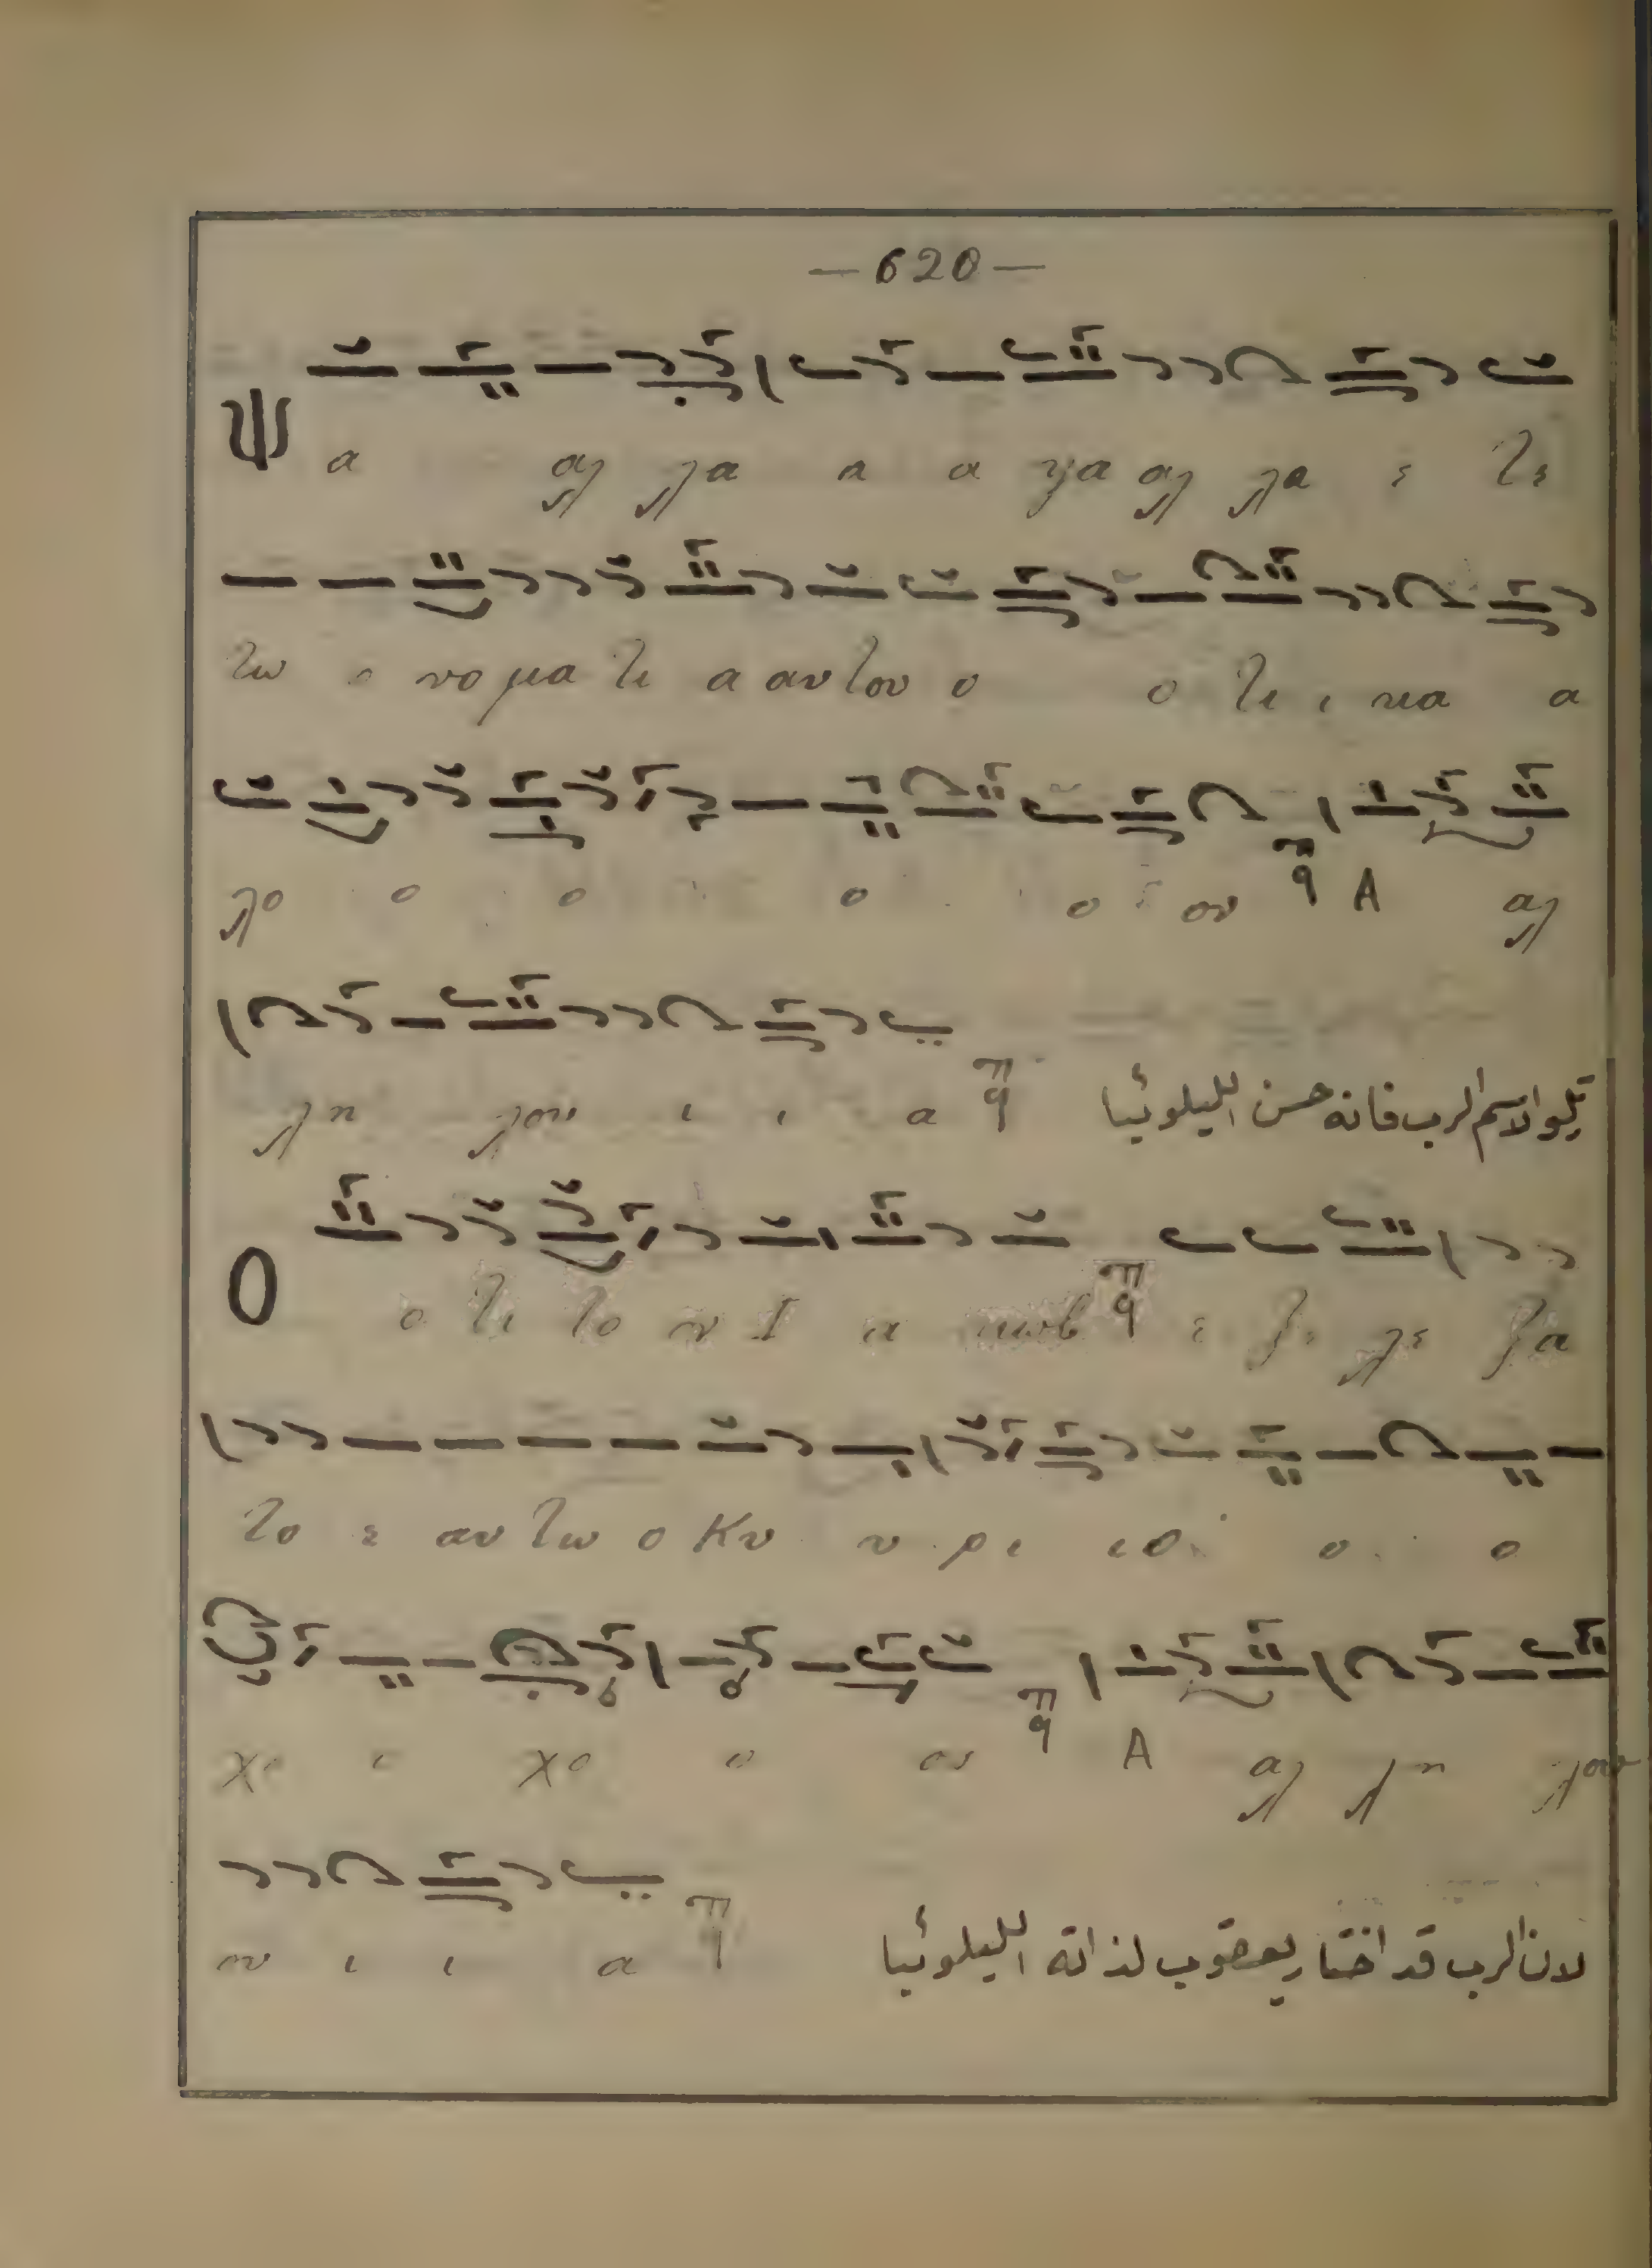 — 620 —
Ψ α αλ λα α α γα αλ λα ε τε
τω ο νο μα τι α αυ του ο ο τι ι κα α
λο ο ο ο ο ον A αλ
λη λου ι ι α رتلوا لاسم الرب فانه حسن الليلوئيا
Ο ο τι το ν Ι α κωβ ε ξε λε ξα
το ε αυ τω ο Κυ υ ρι ι ο ο ο
χο ο χο ο ος A αλ λη λου
ου ι ι α لان الرب قد اختار يعقوب لذاته الليلوئيا